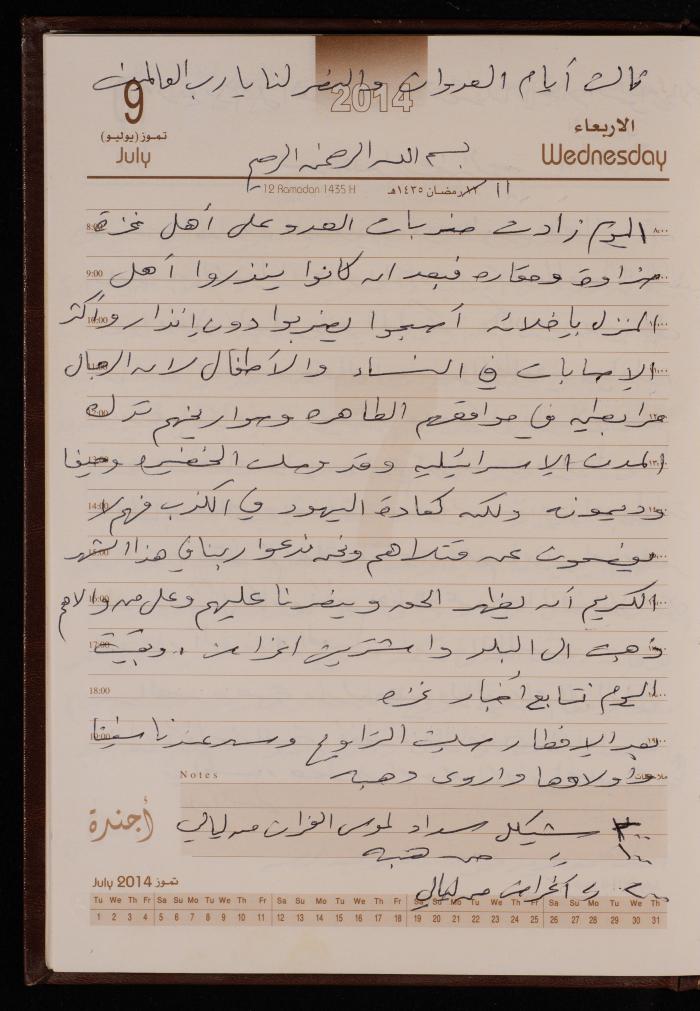 ثالث أيام العدوان والنصر لنا يا رب العالمين
2014
9
تموز (يوليو)
July
الاربعاء
Wednesday
بسم الله الرحمن الرحيم
12 Ramadan 1435 H
١٢ رمضان ١٤٣٥هـ
١١
8:00 اليوم زادت ضربات العدو على أهل غزة ٨:٠٠
9:00 ضراوة وحقاره فبعد ان كانوا ينذروا أهل
10:00 المنزل بإخلائه أصبحوا يضربوا دون إنذار وأكثر
الإصابات في النساء والأطفال لان الرجال
مرابطين في مواقعهم الطاهره وصواريخهم تدك
المدن الاسرائيليه وقد وصلت الخضيره وحيفا
14:00 وديمونه ولكن كعادة اليهود في الكذب فهم لا
يفصحون عن قتلاهم ونحن ندعوا ربنا في هذا الشهر
الكريم أن يظهر الحق وينصرنا عليهم وعلى من والاهم
17:00 ذهبت الى البلد واشتريت اغراض . وبقيت
18:00 اليوم نتابع أخبار غزه
19:00 بعد الإفطار صليت التراويح وسهر عندنا
وأولادها واروى وهبه
Notes
ملاحظات
٣٠٠ شيكل سداد لموسى الفران من ليالي
١٠٠ " من هبه
٢٠٠ " أغراض من ليالي
أجندة
July 2014 تموز
Tu We Th Fr Sa Su Mo Tu We Th Fr Sa Su Mo Tu We Th Fr Sa Su Mo Tu We Th Fr Sa Su Mo Tu We Th
1 2 3 4 5 6 7 8 9 10 11 12 13 14 15 16 17 18 19 20 21 22 23 24 25 26 27 28 29 30 31